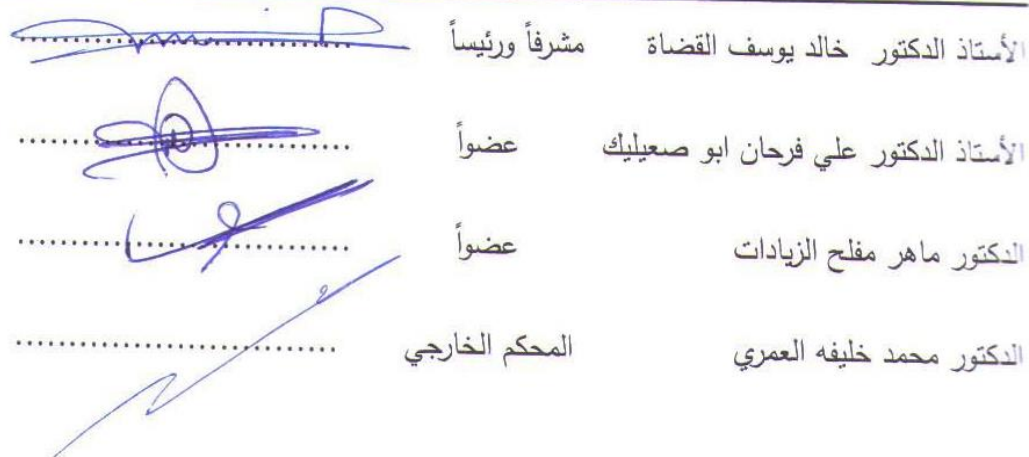 الأستاذ الدكتور خالد يوسف القضاة مشرفاً ورئيساً ................................
الأستاذ الدكتور علي فرحان ابو صعيليك عضواً ................................
الدكتور ماهر مفلح الزيادات عضواً ................................
الدكتور محمد خليفه العمري المحكم الخارجي ................................